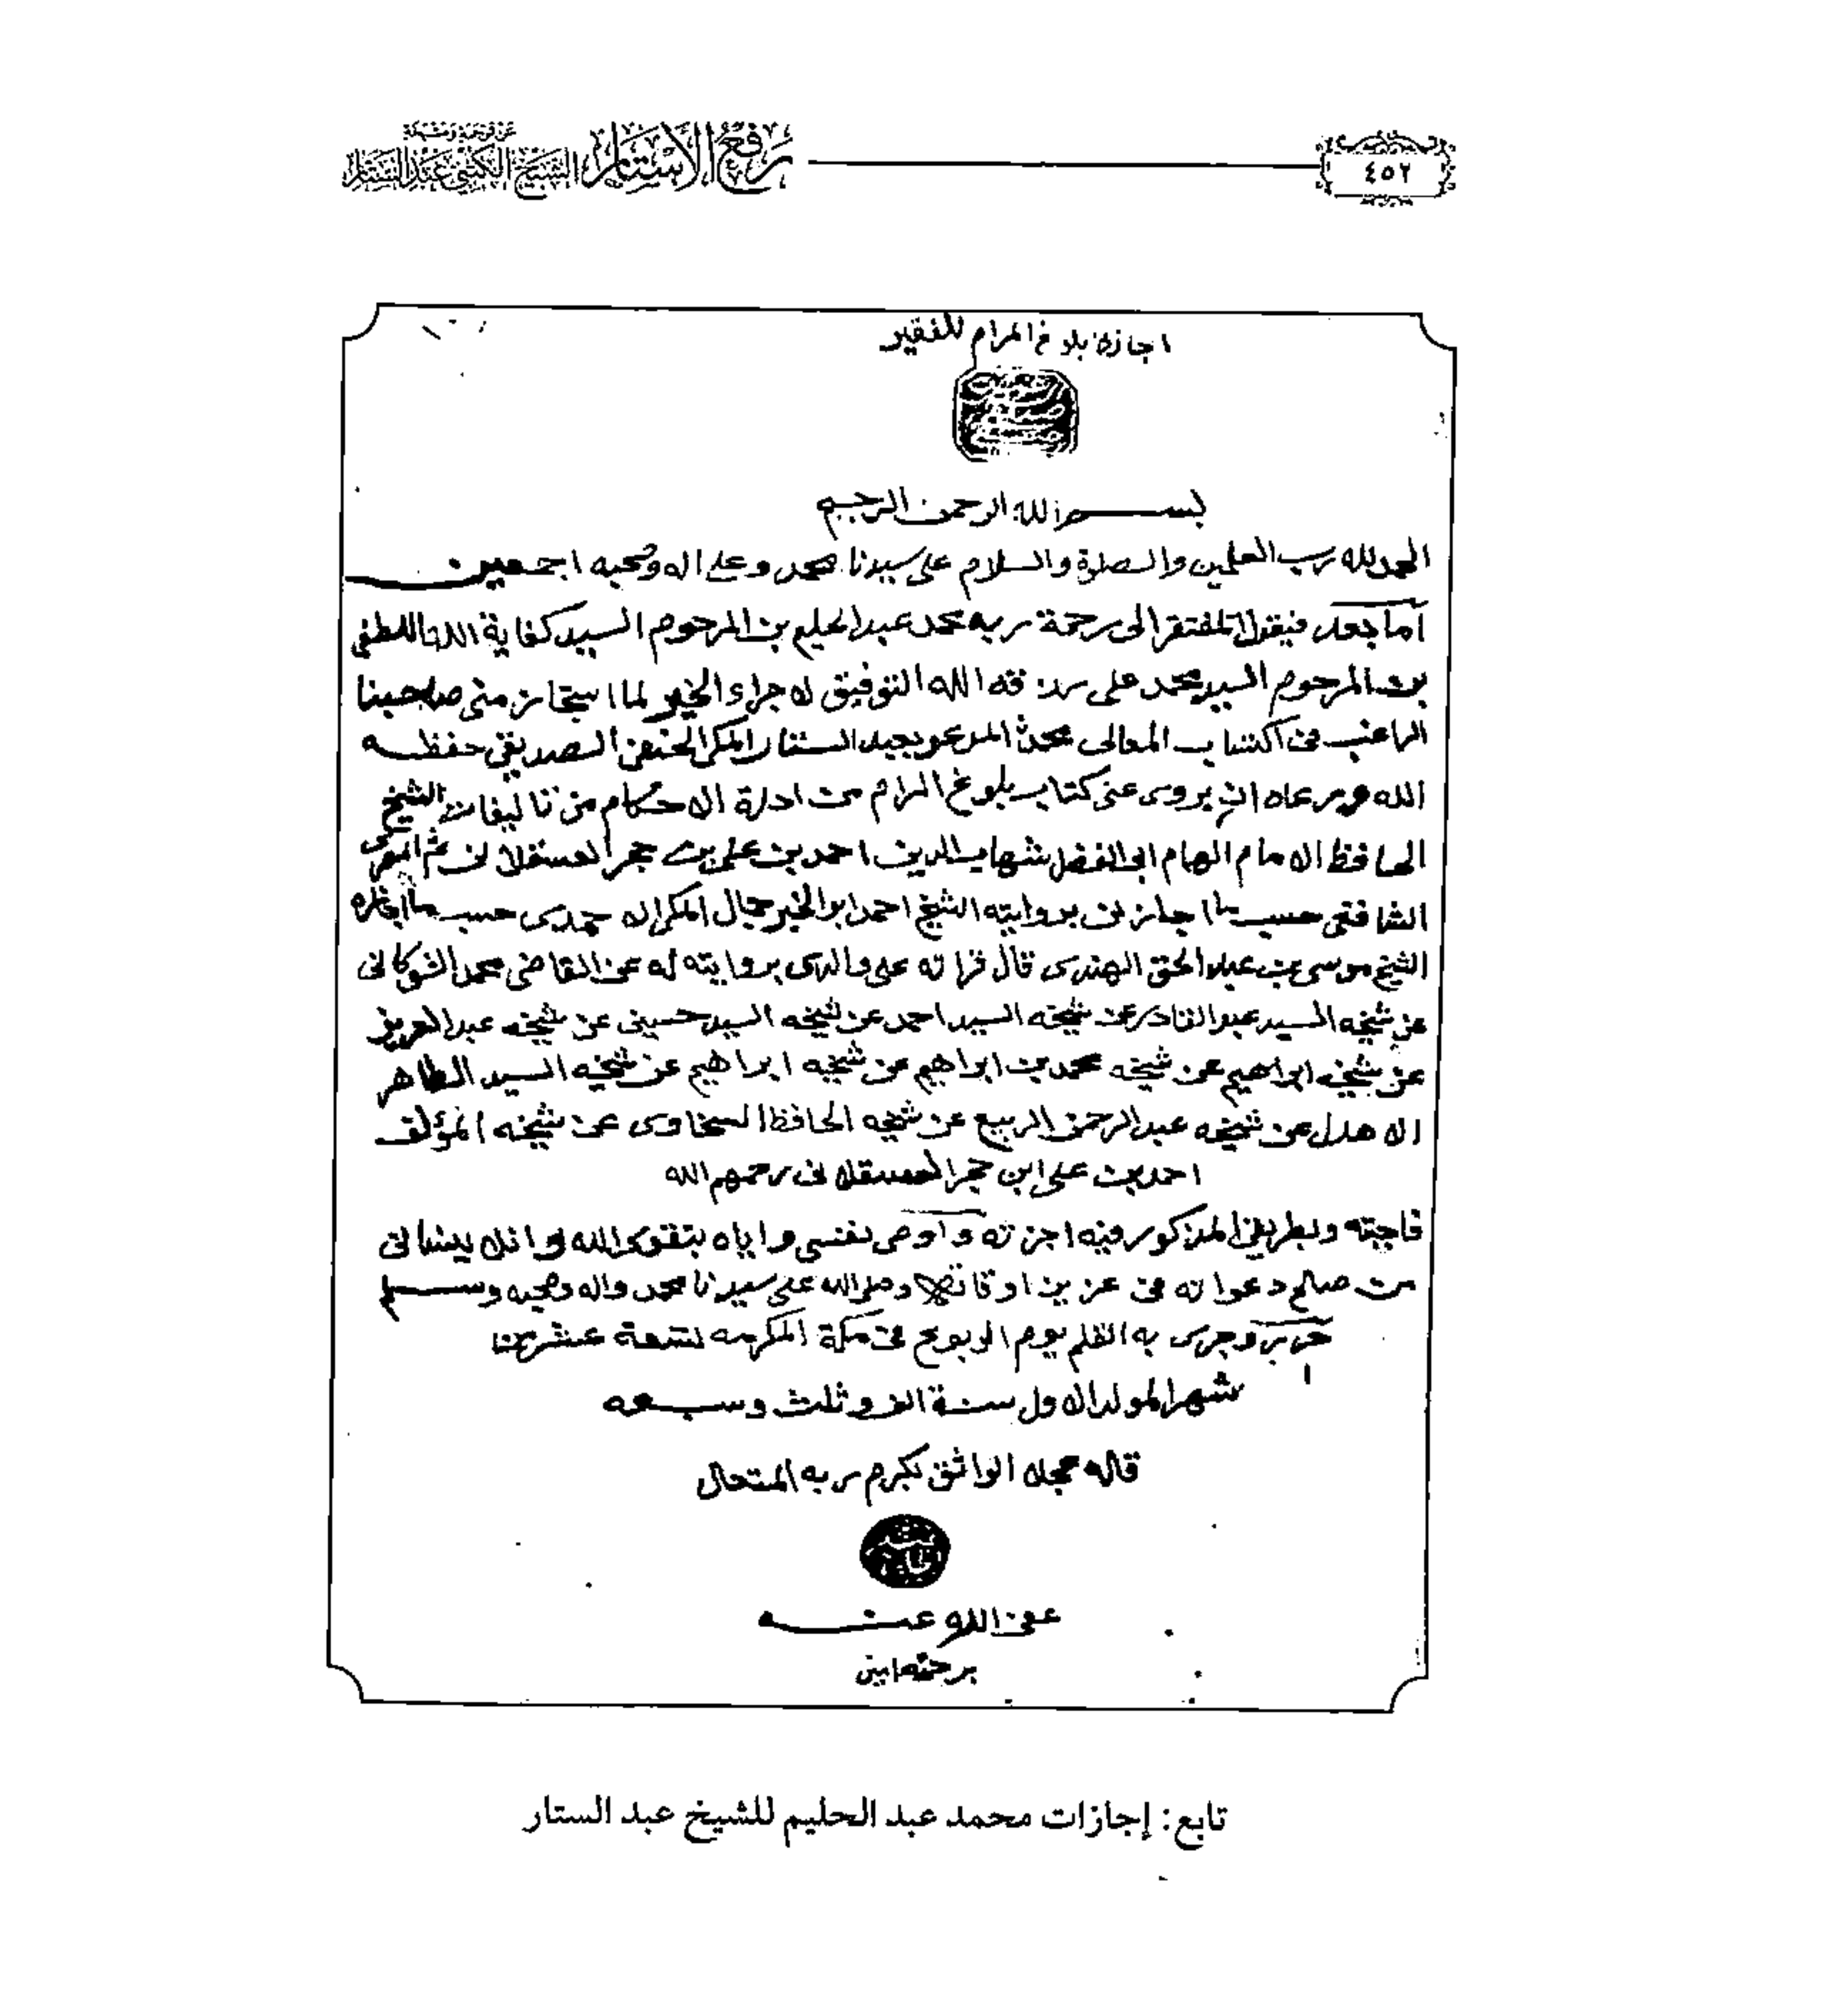 ٤٥٢
رفع الاستار
الشيخ الكتبي عبد الستار
اجازة بلوغ المرام للفقير
بسم الله الرحمن الرحيم
الحمد لله رب العلمين والصلوة والسلام على سيدنا محمد وعلى اله وصحبه اجمعين
اما بعد فيقول المفتقر الى رحمة ربه محمد عبد الحليم بن المرحوم السيد كفاية الله اللطفي
بن المرحوم السيد محمد على رزقه الله التوفيق له جزاء الخير لما استجاز منى صاحبنا
الراغب فى اكتساب المعالى محمد المدعو بعبد الستار المكى الحنفى الصديقى حفظه
الله ورعاه ان يروى عنى كتاب بلوغ المرام من ادلة الاحكام من تاليفات الشيخ
الحافظ الامام الهمام ابى الفضل شهاب الدين احمد بن على بن حجر العسقلانى ثم المصرى
الشافعى حسب ما اجازنى بروايته الشيخ احمد ابو الخير جمال المكى الاحمدى حسب ما اجازه
الشيخ موسى بن عبد الحق الهندى قال قراته على والدى بروايته له عن القاضى محمد الشوكانى
عن شيخه السيد عبد القادر عن شيخه السيد احمد عن شيخه السيد حسين عن شيخه عبد العزيز
عن شيخه ابراهيم عن شيخه محمد بن ابراهيم عن شيخه ابراهيم عن شيخه السيد الطاهر
الاهدل عن شيخه عبد الرحمن الربيع عن شيخه الحافظ السخاوى عن شيخه المؤلف
احمد بن على ابن حجر العسقلانى رحمهم الله
فاجبته وبطريق المذكور فيه اجزته واوصى نفسى واياه بتقوى الله وانك ينسانى
من صالح دعواته فى عزيز اوقاته وصلى الله على سيدنا محمد واله وصحبه وسلم
حرر وجرى به القلم يوم الربوع فى مكة المكرمه لتسعة عشر من
شهر المولد الاول سنة الف وثلث وسبعه
قاله عجله الواثق بكرم ربه المتعال
عفى الله عنه
برحمته امين
تابع: إجازات محمد عبد الحليم للشيخ عبد الستار